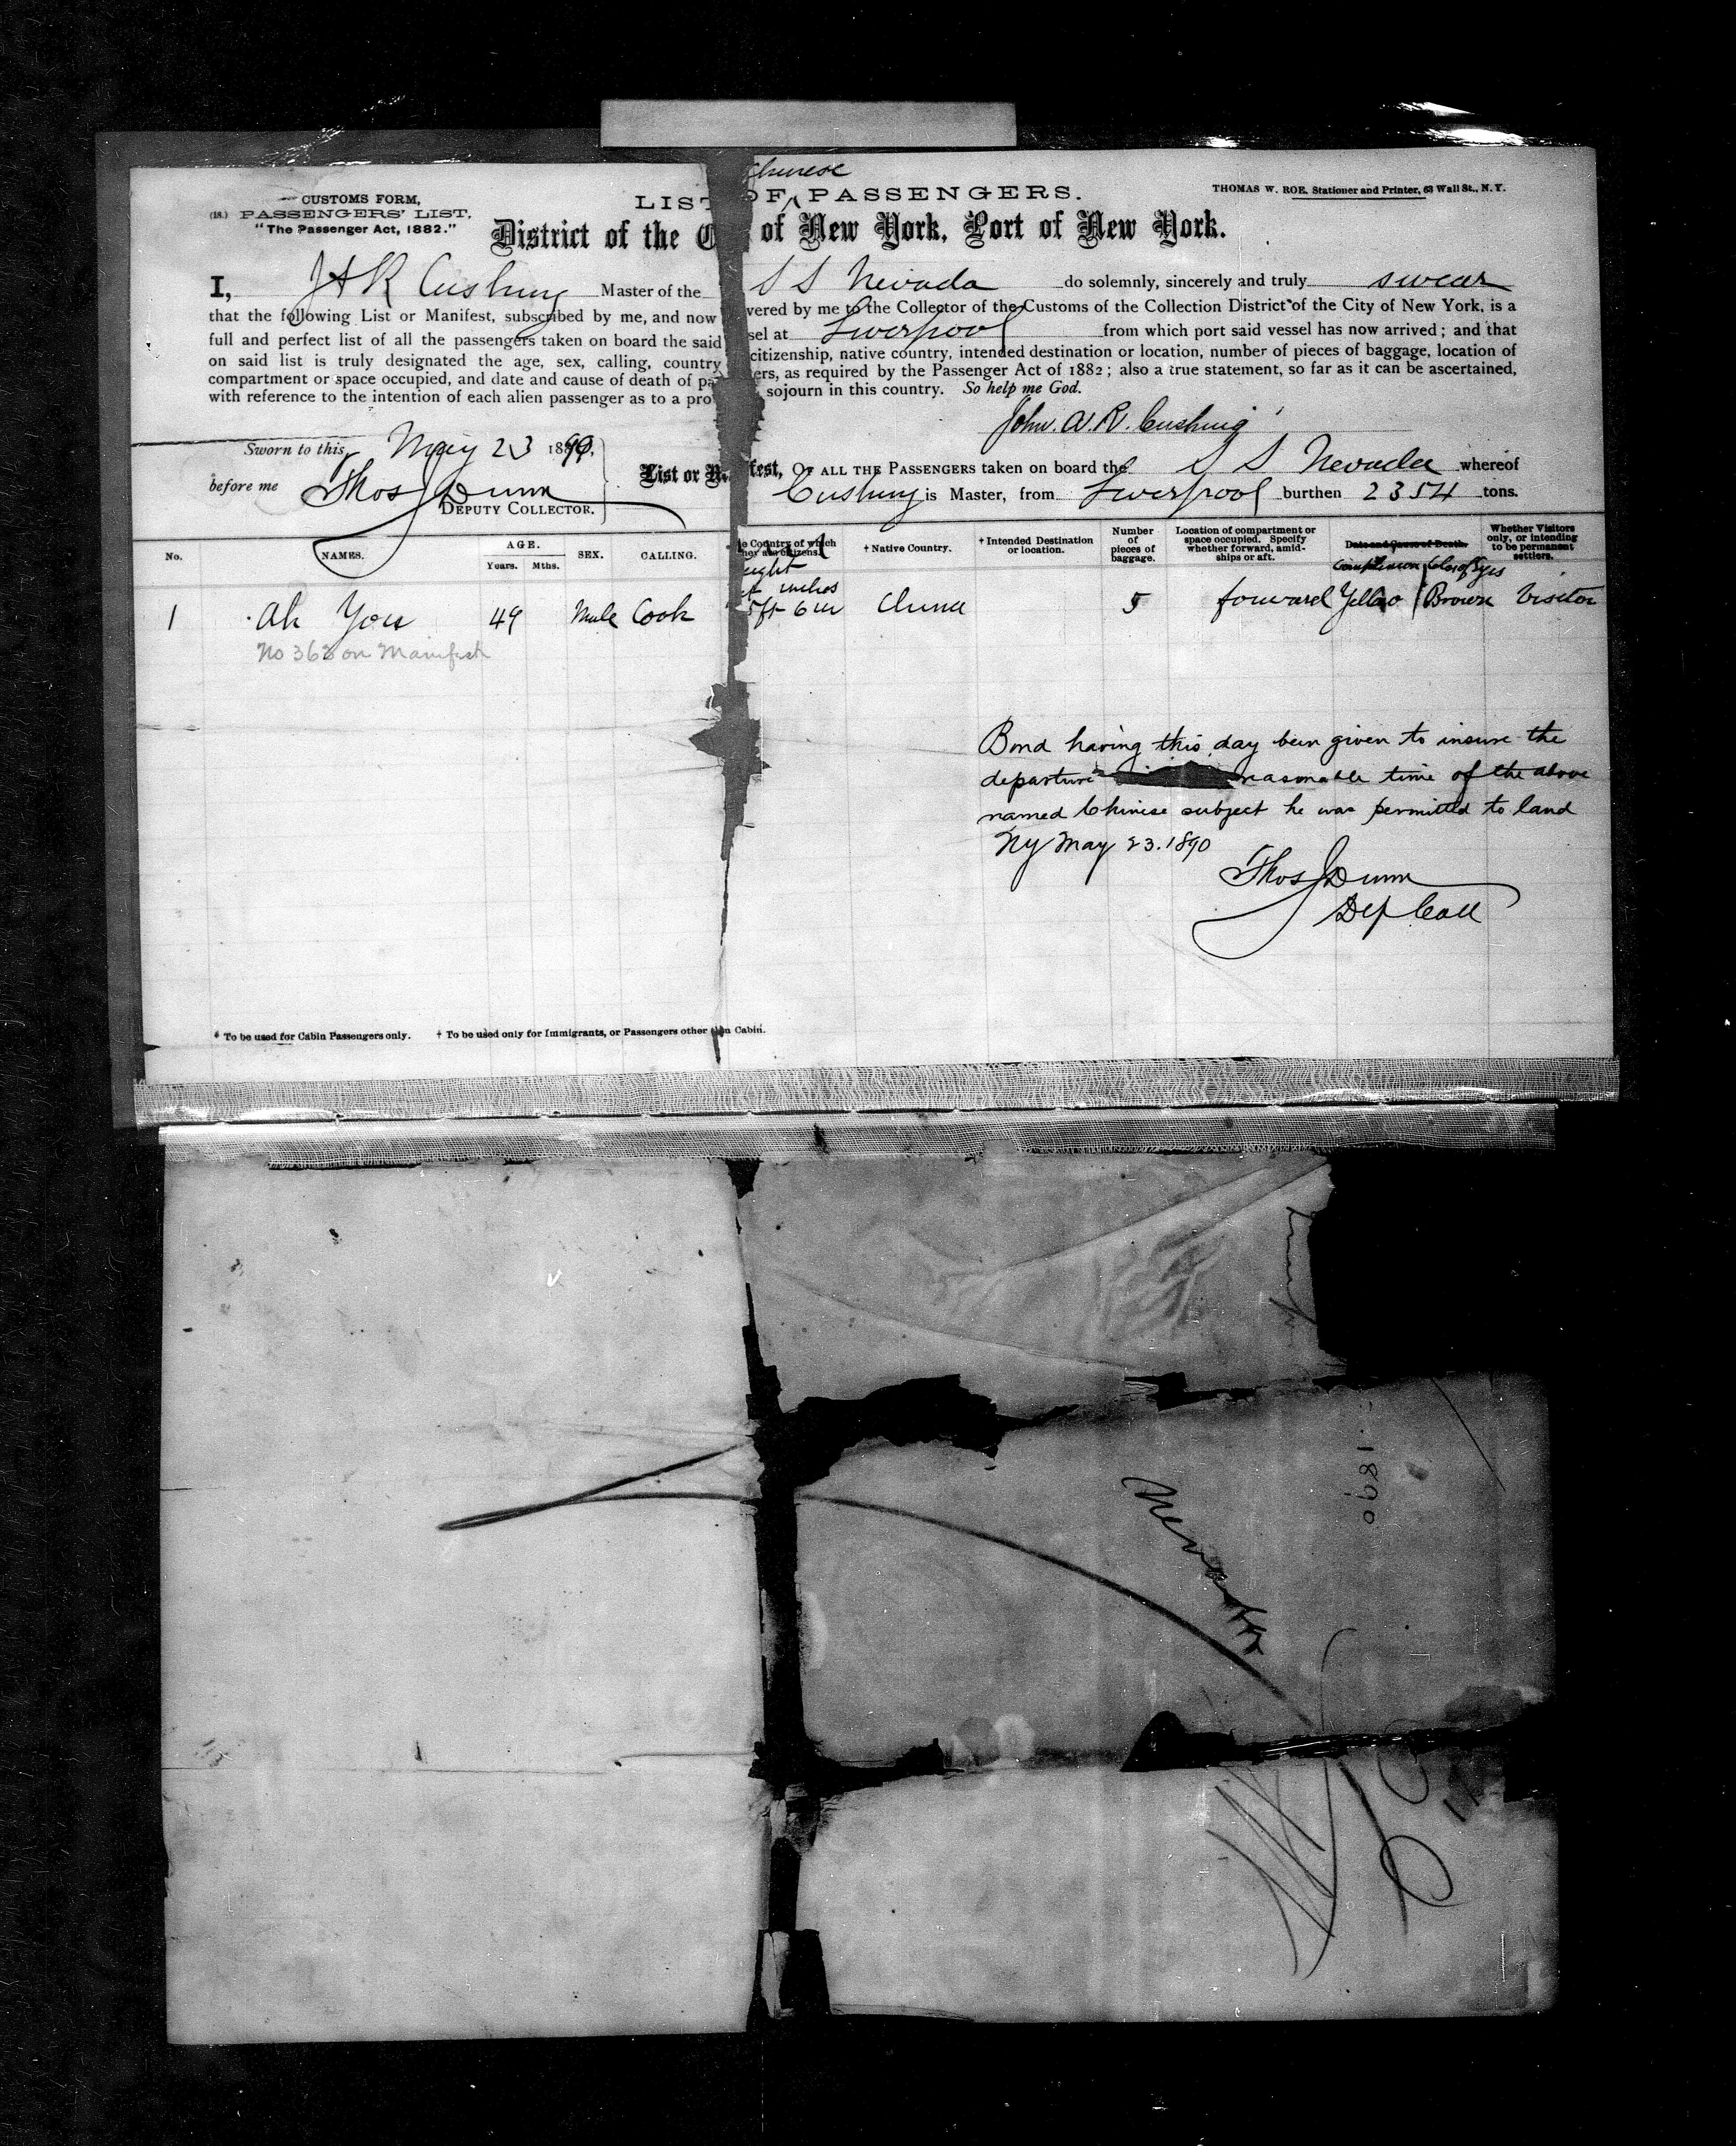 Chinese
CUSTOMS FORM,
(18.) PASSENGERS' LIST,
"The Passenger Act, 1882."
LIST OF PASSENGERS.
THOMAS W. ROE, Stationer and Printer, 63 Wall St., N.Y.
District of the C of New York, Port of New York.
I, J A R Cushing Master of the S S Nevada do solemnly, sincerely and truly swear
that the following List or Manifest, subscribed by me, and now vered by me to the Collector of the Customs of the Collection District of the City of New York, is a
full and perfect list of all the passengers taken on board the said sel at Liverpool from which port said vessel has now arrived; and that
on said list is truly designated the age, sex, calling, country citizenship, native country, intended destination or location, number of pieces of baggage, location of
compartment or space occupied, and date and cause of death of pa ers, as required by the Passenger Act of 1882; also a true statement, so far as it can be ascertained,
with reference to the intention of each alien passenger as to a pro sojourn in this country. So help me God.
John. A. R. Cushing
Sworn to this May 23 1890,
before me Thos J Dunn
DEPUTY COLLECTOR.
List or M fest, OF ALL THE PASSENGERS taken on board the S S Nevada whereof
Cushing is Master, from Liverpool burthen 2354 tons.
No. NAMES. AGE. Years. Mths. SEX. CALLING. e Country of which her are citizens. † Native Country. † Intended Destination or location. Number of pieces of baggage. Location of compartment or space occupied. Specify whether forward, amidships or aft. Date and Cause of Death. Whether Visitors only, or intending to be permanent settlers.
eight
ft inches
Complexion Color of Eyes
1 Ah You 49 Male Cook 5 ft 6 in China 5 forward Yellow Brown Visitor
No 362 on Manifest
Bond having this day been given to insure the
departure reasonable time of the above
named Chinese subject he was permitted to land
NY May 23. 1890
Thos J Dunn
Dep Coll
* To be used for Cabin Passengers only. † To be used only for Immigrants, or Passengers other than Cabin.
1890
Nevada